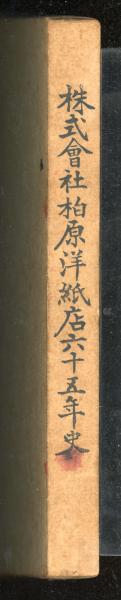 株式會社柏原洋紙店六十五年史